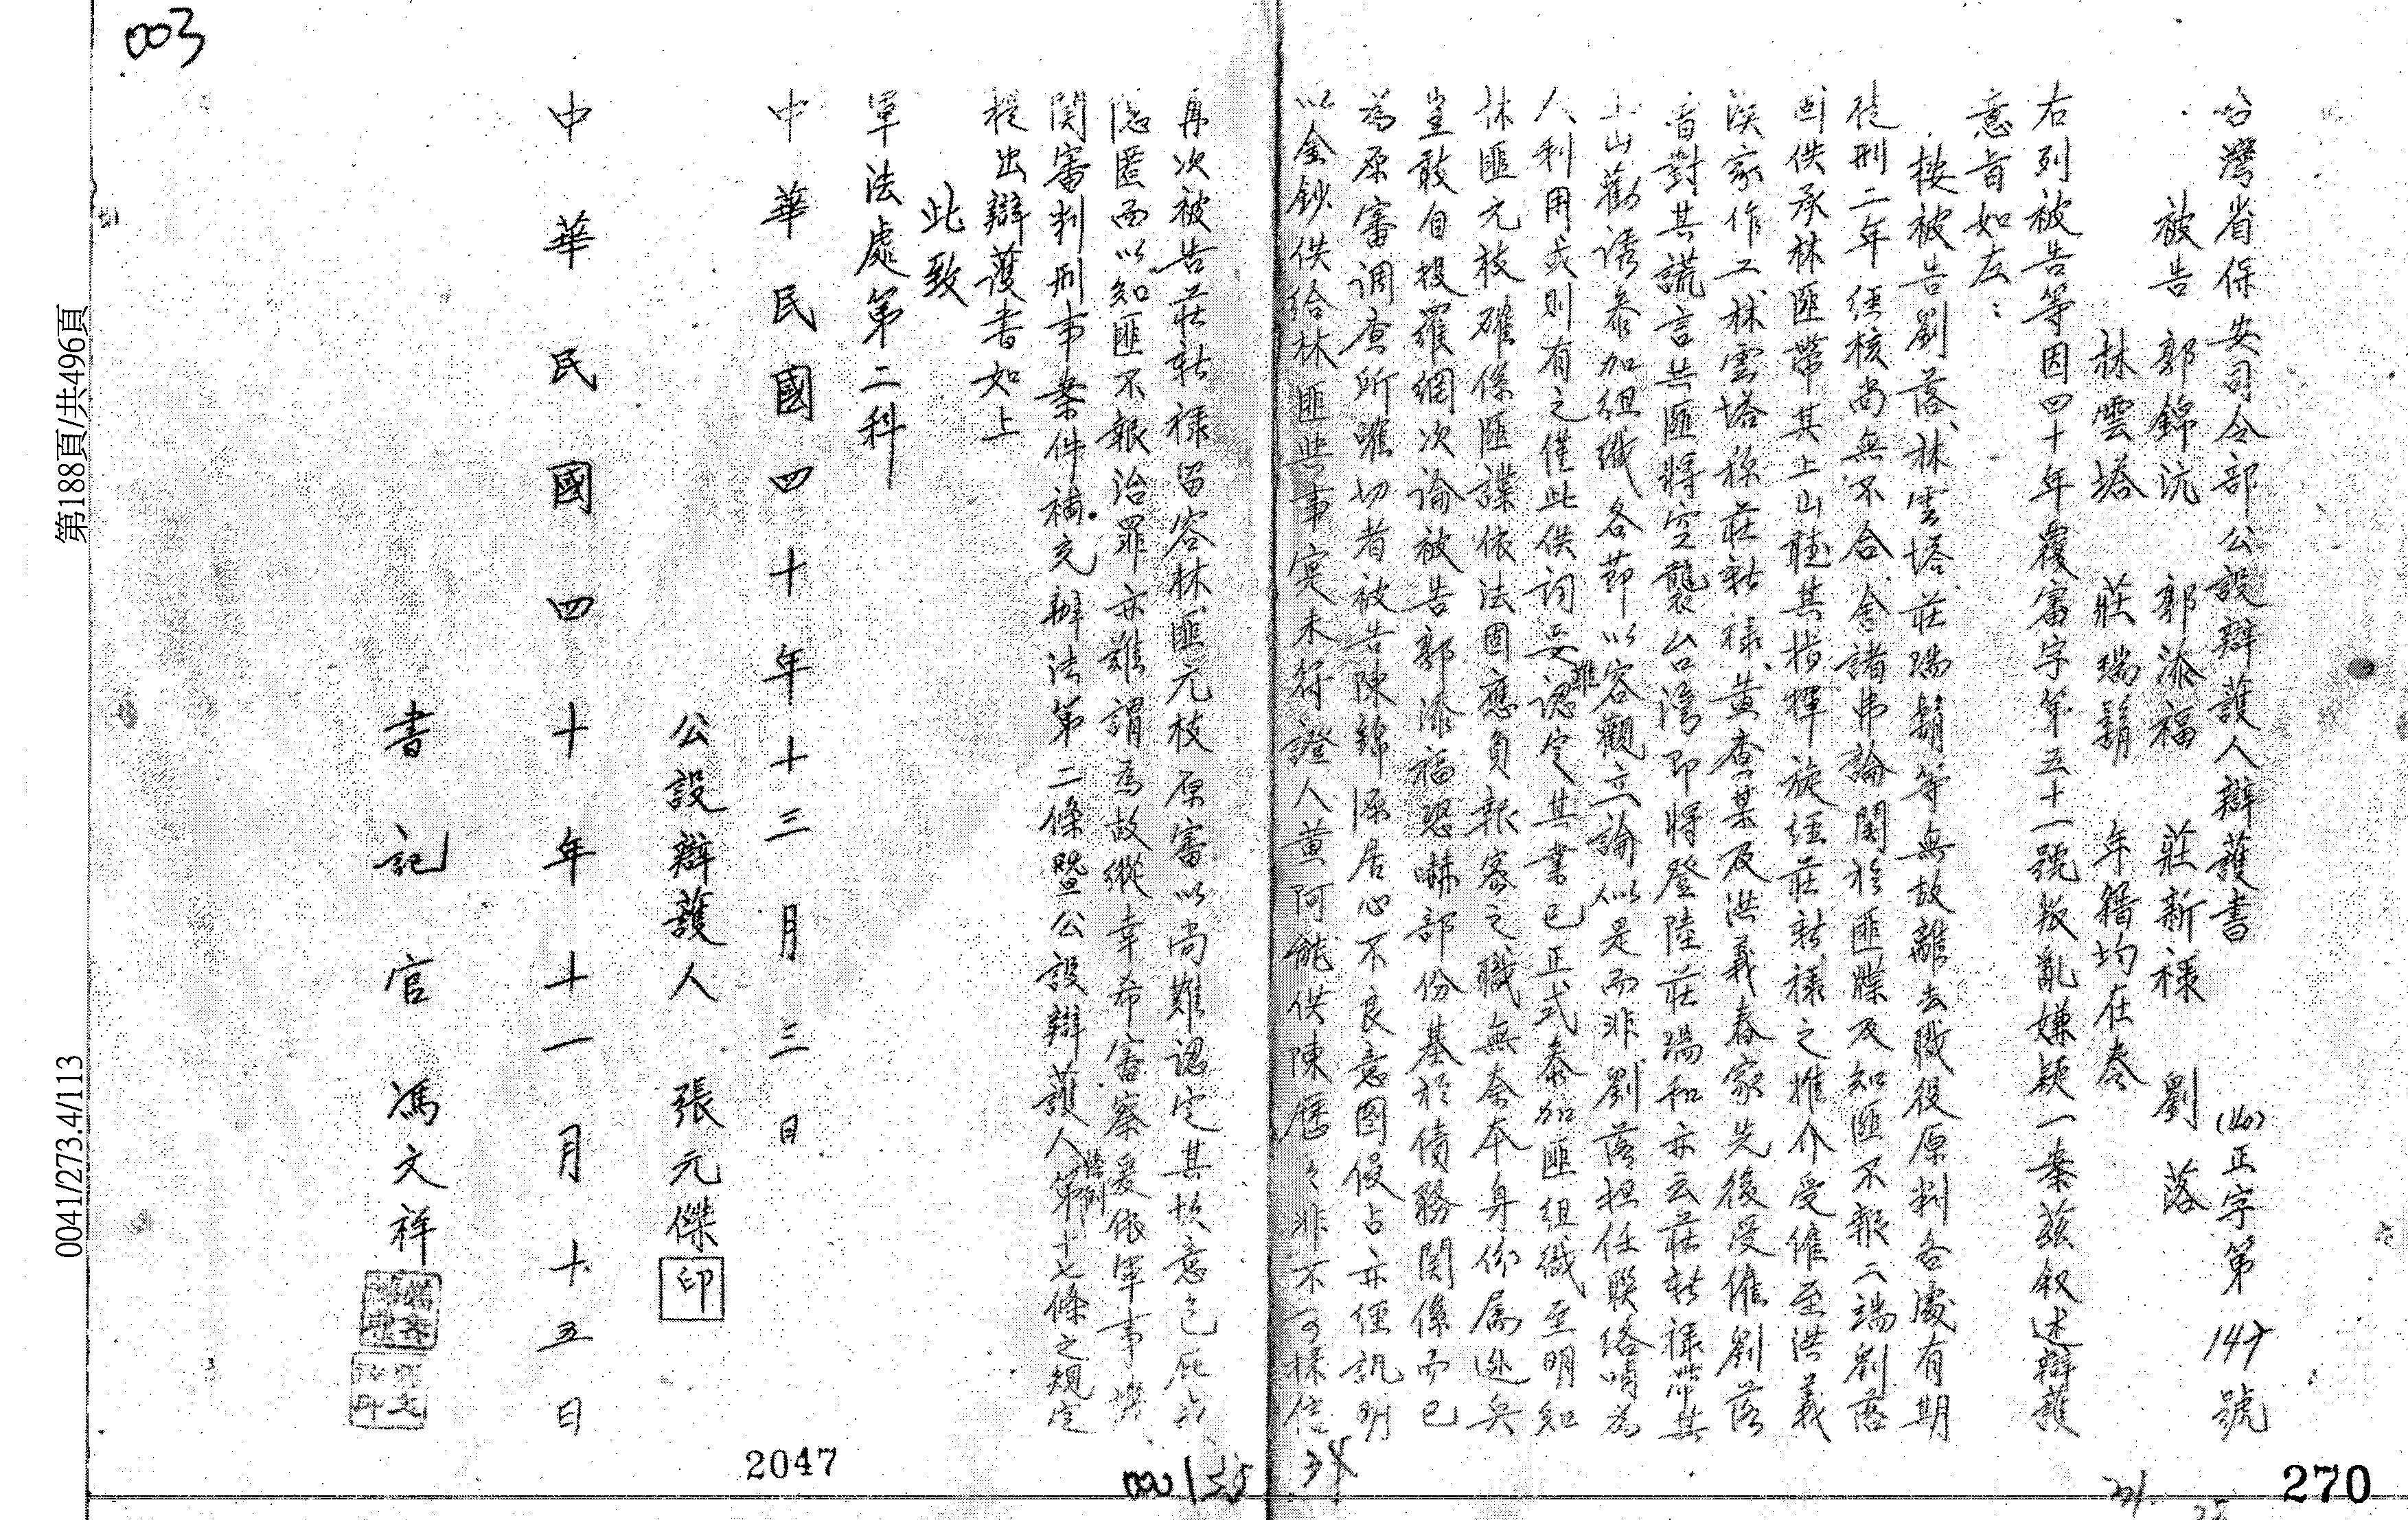 台灣省保安司令部公設辯護人辯護書 (40)正字第147號
被告 郭錦沅 郭添福 莊新祿 劉落
林雲塔 莊瑞鬍 年籍均在卷
右列被告等因四十年覆審字第五十一號叛亂嫌疑一案茲叙述辯護
意旨如左：
按被告劉落、林雲塔、莊瑞鬍等無故離去職役原判各處有期
徒刑二年經核尚無不合舍諸弗論関於匪諜及知匪不報二端劉落
供承林匪帶其上山聽其指揮旋經莊新祿之推介受僱至洪義
家作工、林雲塔稱莊新祿、黄查某及洪義春家先後受僱劉落
曾對其謊言共匪將空襲台灣即將登陸莊瑞和亦云莊新祿帶其
上山勸誘參加組織各節以客觀立論似是而非劉落担任聯络哨為
人利用或則有之僅此供詞要難認定其業已正式參加匪組織至明知
林匪元枝確係匪諜依法固應負報密之職無奈本身份属逃兵
豈敢自投羅網次論被告郭添福恐嚇部份基於債務関係而已
為原審調查所曬切者被告陳錦源居心不良意图侵占亦經訊明
以金鈔供給林匪些事実未符證人黄阿能供陳歷々非不可採信
再次被告莊新祿留容林匪元枝原審以尚難認定其故意包庇
隱匿而以知匪不報治罪亦難謂為故縱幸希審察爰依軍事機
関審判刑事案件補充辦法第二條暨公設辯護人條例第十七條之規定
提出辯護書如上
此致
軍法處第二科
中華民國四十年十三月三日
公設辯護人 張元傑 印
中華民國四十年十一月十五日
書記官 馮文祥
003
第188頁/共496頁
0041/273.4/113
2047
270